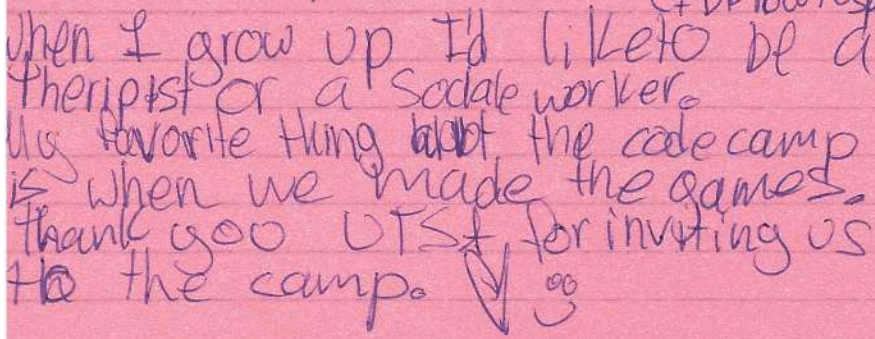 When I grow up I'd like to be a
Theripist or a Sociale worker.
My favorite thing about the code camp
is when we made the games.
thank you UTSA for inviting us
to the camp.